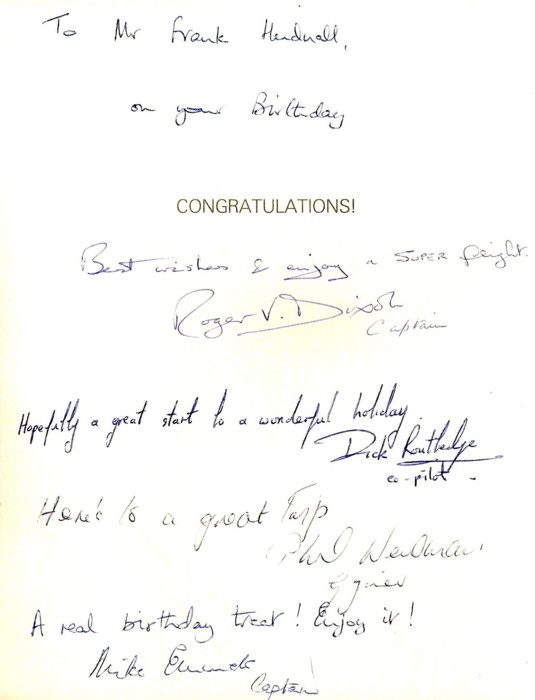 To Mr Frank
on your Birthday
CONGRATULATIONS!
Best wishes & enjoy a SUPER flight.
Roger V. Dixon
Captain
Hopefully a great start to a wonderful holiday.
Dick Routledge
co-pilot -
Here's to a great
Phil
A real birthday treat! Enjoy it!
Mike
Captain